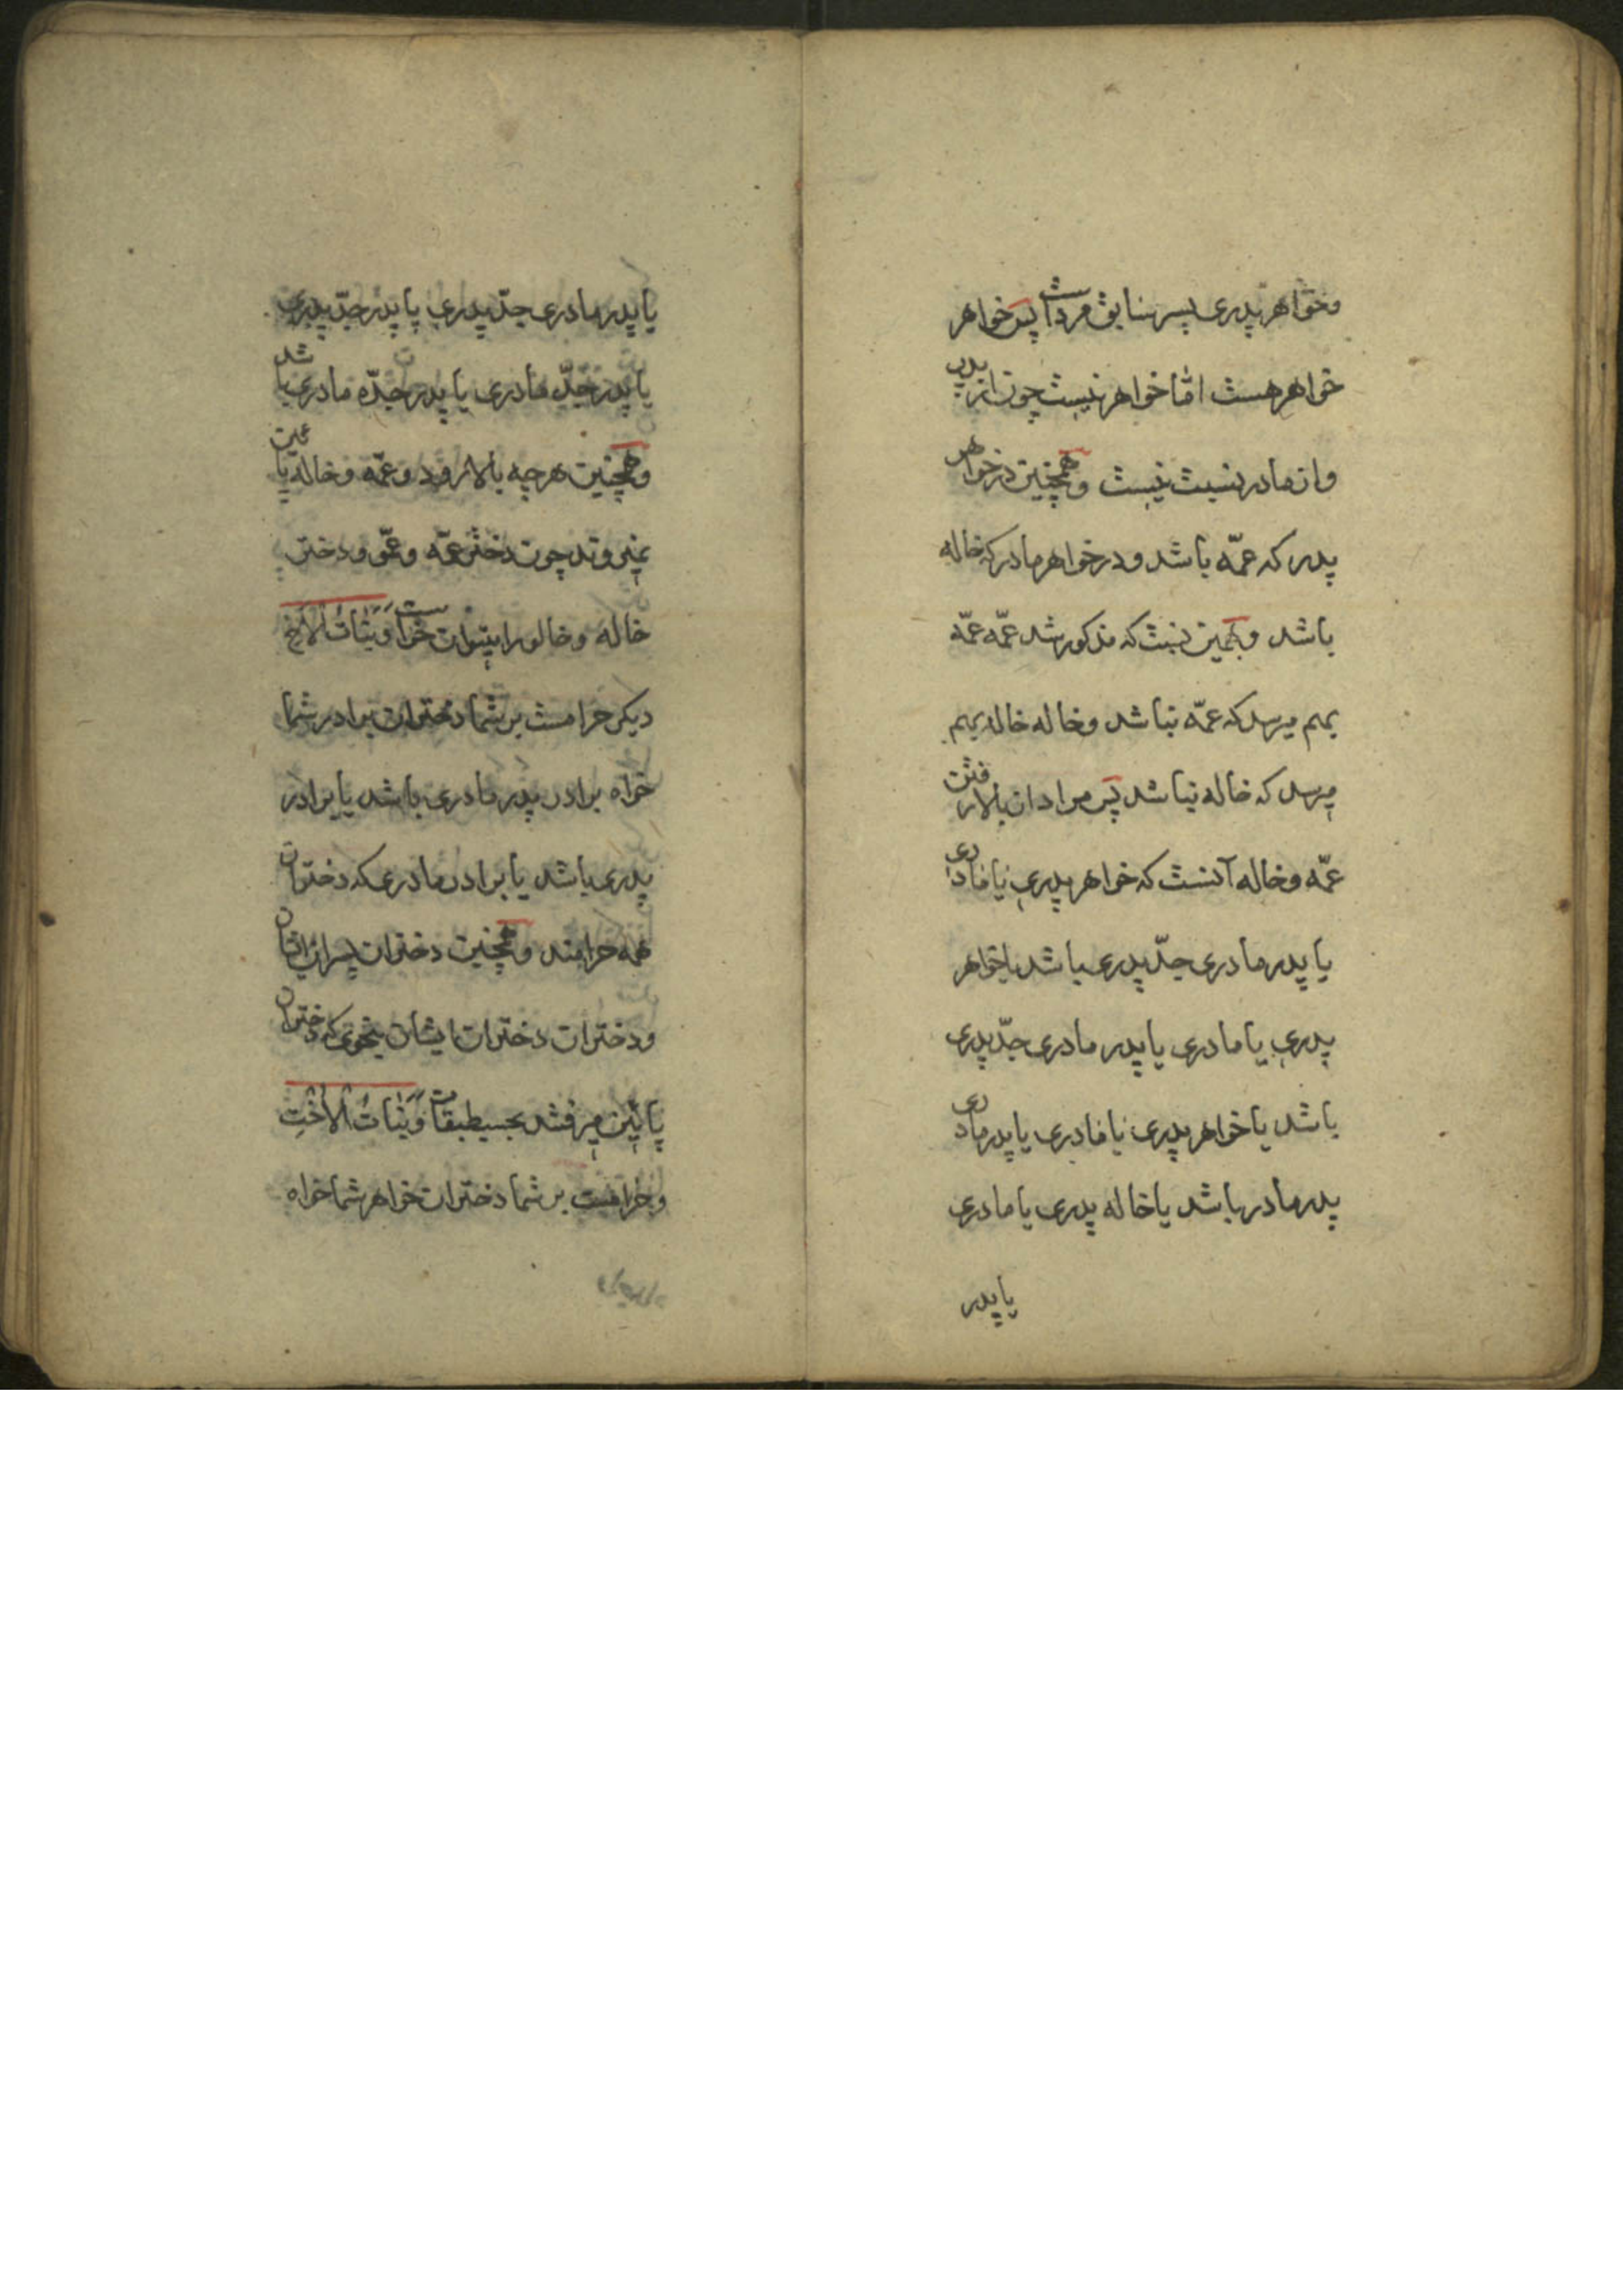 وخواهر پدری پسر سابق مرد است پس خواهر
خواهر هست امّا خواهر نیست چون از پدر
واز مادر نسبت نیست وهمچنین در خواهر
پدر که عمّه باشد ودر خواهر مادر که خاله
باشد وبهمین نسبت که مذکور شد عمّه عمّه
بهم میرسد که عمّه نباشد وخاله خاله بهم
میرسد که خاله نباشد پس مراد از بالا رفتن
عمّه وخاله آنست که خواهر پدری یا مادری
یا پدر مادری جدّ پدری باشد یا خواهر
پدری یا مادری یا پدر مادری جدّ پدری
باشد یا خواهر پدری یا مادری یا پدر مادری
پدر مادر باشد یا خاله پدری یا مادری
یا پدر
یا پدر مادری جدّ پدری یا پدر جدّ پدری
یا پدر جدّ مادری یا پدر جدّه مادری باشد
وهمچنین هرچه بالا رود وعمّه وخاله پایین
نمیروند چون دختر عمّه وعمّو ودختر
خاله وخالو را میتوان خواست وَبَنَاتُ الْأَخِ
دیگر حرامست بر شما دختران برادر شما
خواه برادر پدر مادری باشد یا برادر
پدری باشد یا برادر مادری که دختران
همه حرامند وهمچنین دختران پسران ایشان
ودختران دختران ایشان بنحوی که دختران
پائین میرفتند بحسب طبقات وَبَنَاتُ الْأُخْتِ
وحرامست بر شما دختران خواهر شما خواه